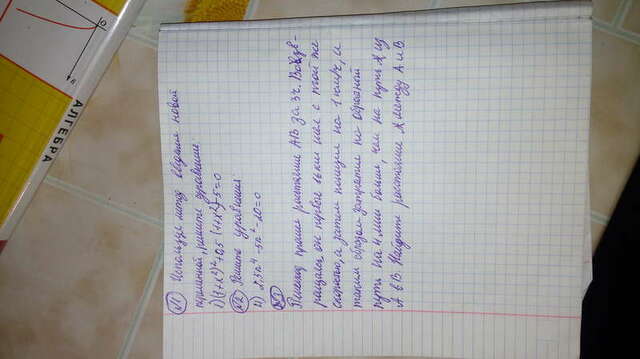 АЛГЕБРА
№1 Используя метод введения новой
переменной, решите уравнение:
(1+x²)²+0,5(1+x²)-5=0
№2 Решите уравнения
2x⁴-5x²-20=0
№3
Пешеход прошёл расстояние АВ за 3ч. Возв-
ращаясь, он первые шёл с той же
скоростью, а затем на 1 км/ч, и
таким образом затратил на обратный
путь на 4 мин больше, чем на путь из
А в В. Найдите расстояние между А и В